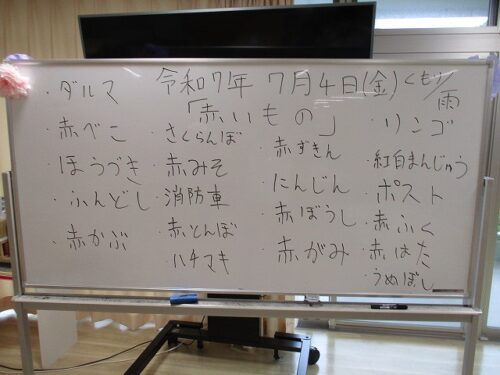 令和7年 7月4日(金)くもり/雨
「赤いもの」
・ダルマ
・赤べこ
・ほうづき
・ふんどし
・赤かぶ
・さくらんぼ
・赤みそ
・消防車
・赤とんぼ
・ハチマキ
・赤ずきん
・にんじん
・赤ぼうし
・赤がみ
・リンゴ
・紅白まんじゅう
・ポスト
・赤ふく
・赤はた
・うめぼし